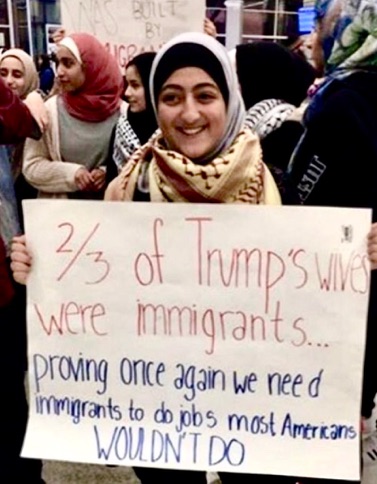 WAS BUILT
BY
IMMIGRAN
2/3 of Trump's wives
were immigrants...
proving once again we need
immigrants to do jobs most Americans
WOULDN'T DO